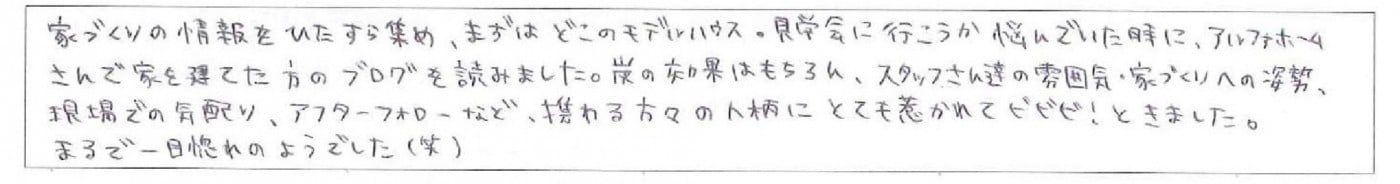 家づくりの情報をひたすら集め、まずはどこのモデルハウス。見学会に行こうか悩んでいた時に、アルファホーム
さんで家を建てた方のブログを読みました。炭の効果はもちろん、スタッフさん達の雰囲気・家づくりへの姿勢、
現場での気配り、アフターフォローなど、携わる方々の人柄にとても惹かれてビビビ!ときました。
まるで一目惚れのようでした(笑)